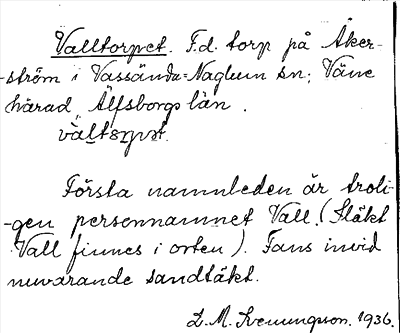 Valltorpet. F.d. torp på Åker-
-ström i Vassända-Naglum sn; Väne
härad Älfsborgs län.
Första namnleden är troli-
-gen personnamnet Vall. (Släkt
Vall finnes i orten). Fans invid
nuvarande sandtäkt.
L. M. Svenungson. 1936.